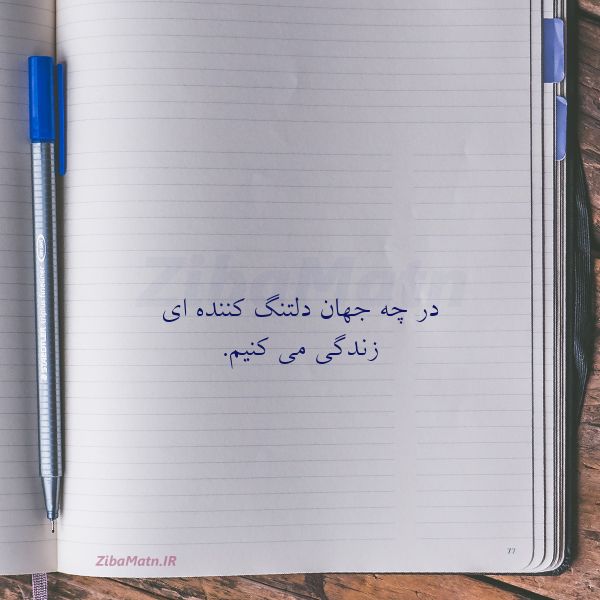 ZibaMatn
در چه جهان دلتنگ کننده ای
زندگی می کنیم.
ZibaMatn.IR
77